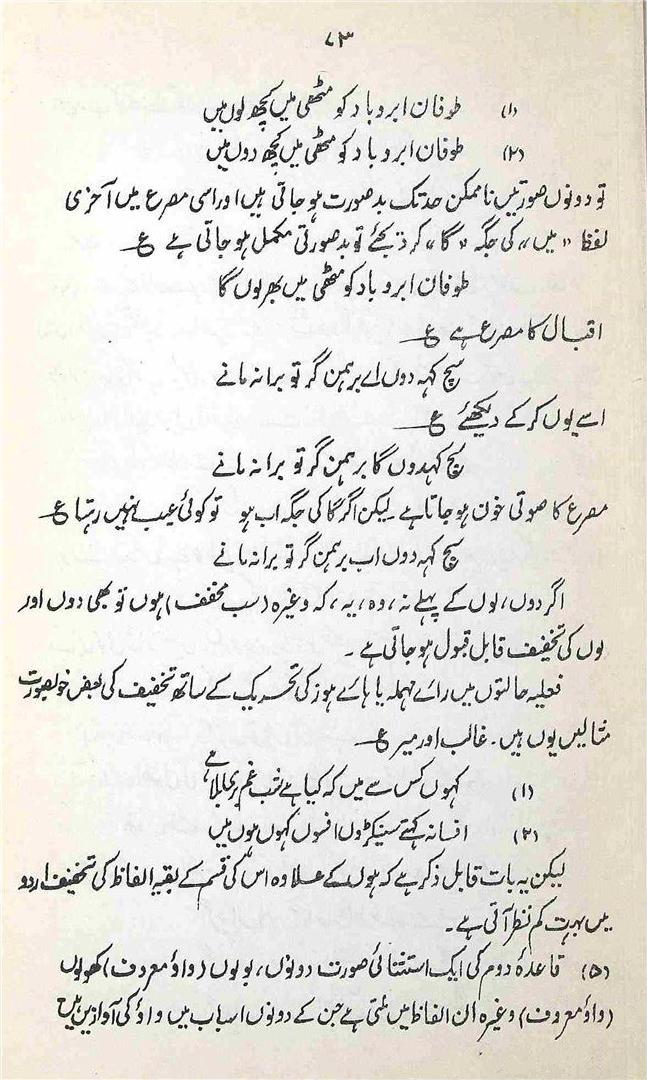 ۷۳
(۱) طوفان ابر و باد کو مٹھی میں کچھ لوں میں
(۲) طوفان ابر و باد کو مٹھی میں کچھ دوں میں
تو دونوں صورتیں ناممکن حد تک بد صورت ہو جاتی ہیں اور اسی مصرع میں آخری
لفظ "میں" کی جگہ "گا" کر دیجئے تو بد صورتی مکمل ہو جاتی ہے ع
طوفان ابر و باد کو مٹھی میں بھر لوں گا
اقبال کا مصرع ہے ع
سچ کہہ دوں اے برہمن گر تو برا نہ مانے
اسے یوں کرکے دیکھئے ع
سچ کہدوں گا برہمن گر تو برا نہ مانے
مصرع کا صوتی خون ہو جاتا ہے لیکن اگر گا کی جگہ اب ہو تو کوئی عیب نہیں رہتا ع
سچ کہہ دوں اب برہمن گر تو برا نہ مانے
اگر دوں، لوں کے پہلے نہ، وہ، یہ، کہ وغیرہ (سب مخفف) ہوں تو بھی دوں اور
لوں کی تخفیف قابل قبول ہو جاتی ہے۔
فعلیہ حالتوں میں رائے مہملہ یا ہائے ہوز کی تحریک کے ساتھ تخفیف کی بعض خوبصورت
مثالیں یوں ہیں۔ غالب اور میر ع
(۱) کہوں کس سے میں کہ کیا ہے شب غم بری بلا ہے
(۲) افسانہ کہتے سینکڑوں افسوں کہوں ہوں میں
لیکن یہ بات قابل ذکر ہے کہ ہوں کے علاوہ اس کی قسم کے بقیہ الفاظ کی تخفیف اردو
میں بہت کم نظر آتی ہے۔
(۵) قاعدۂ دوم کی ایک استثنائی صورت دونوں، بولوں (واؤ معروف) کھولوں
(واؤ معروف) وغیرہ ان الفاظ میں ملتی ہے جن کے دونوں اسباب میں واؤ کی آوازیں ہیں